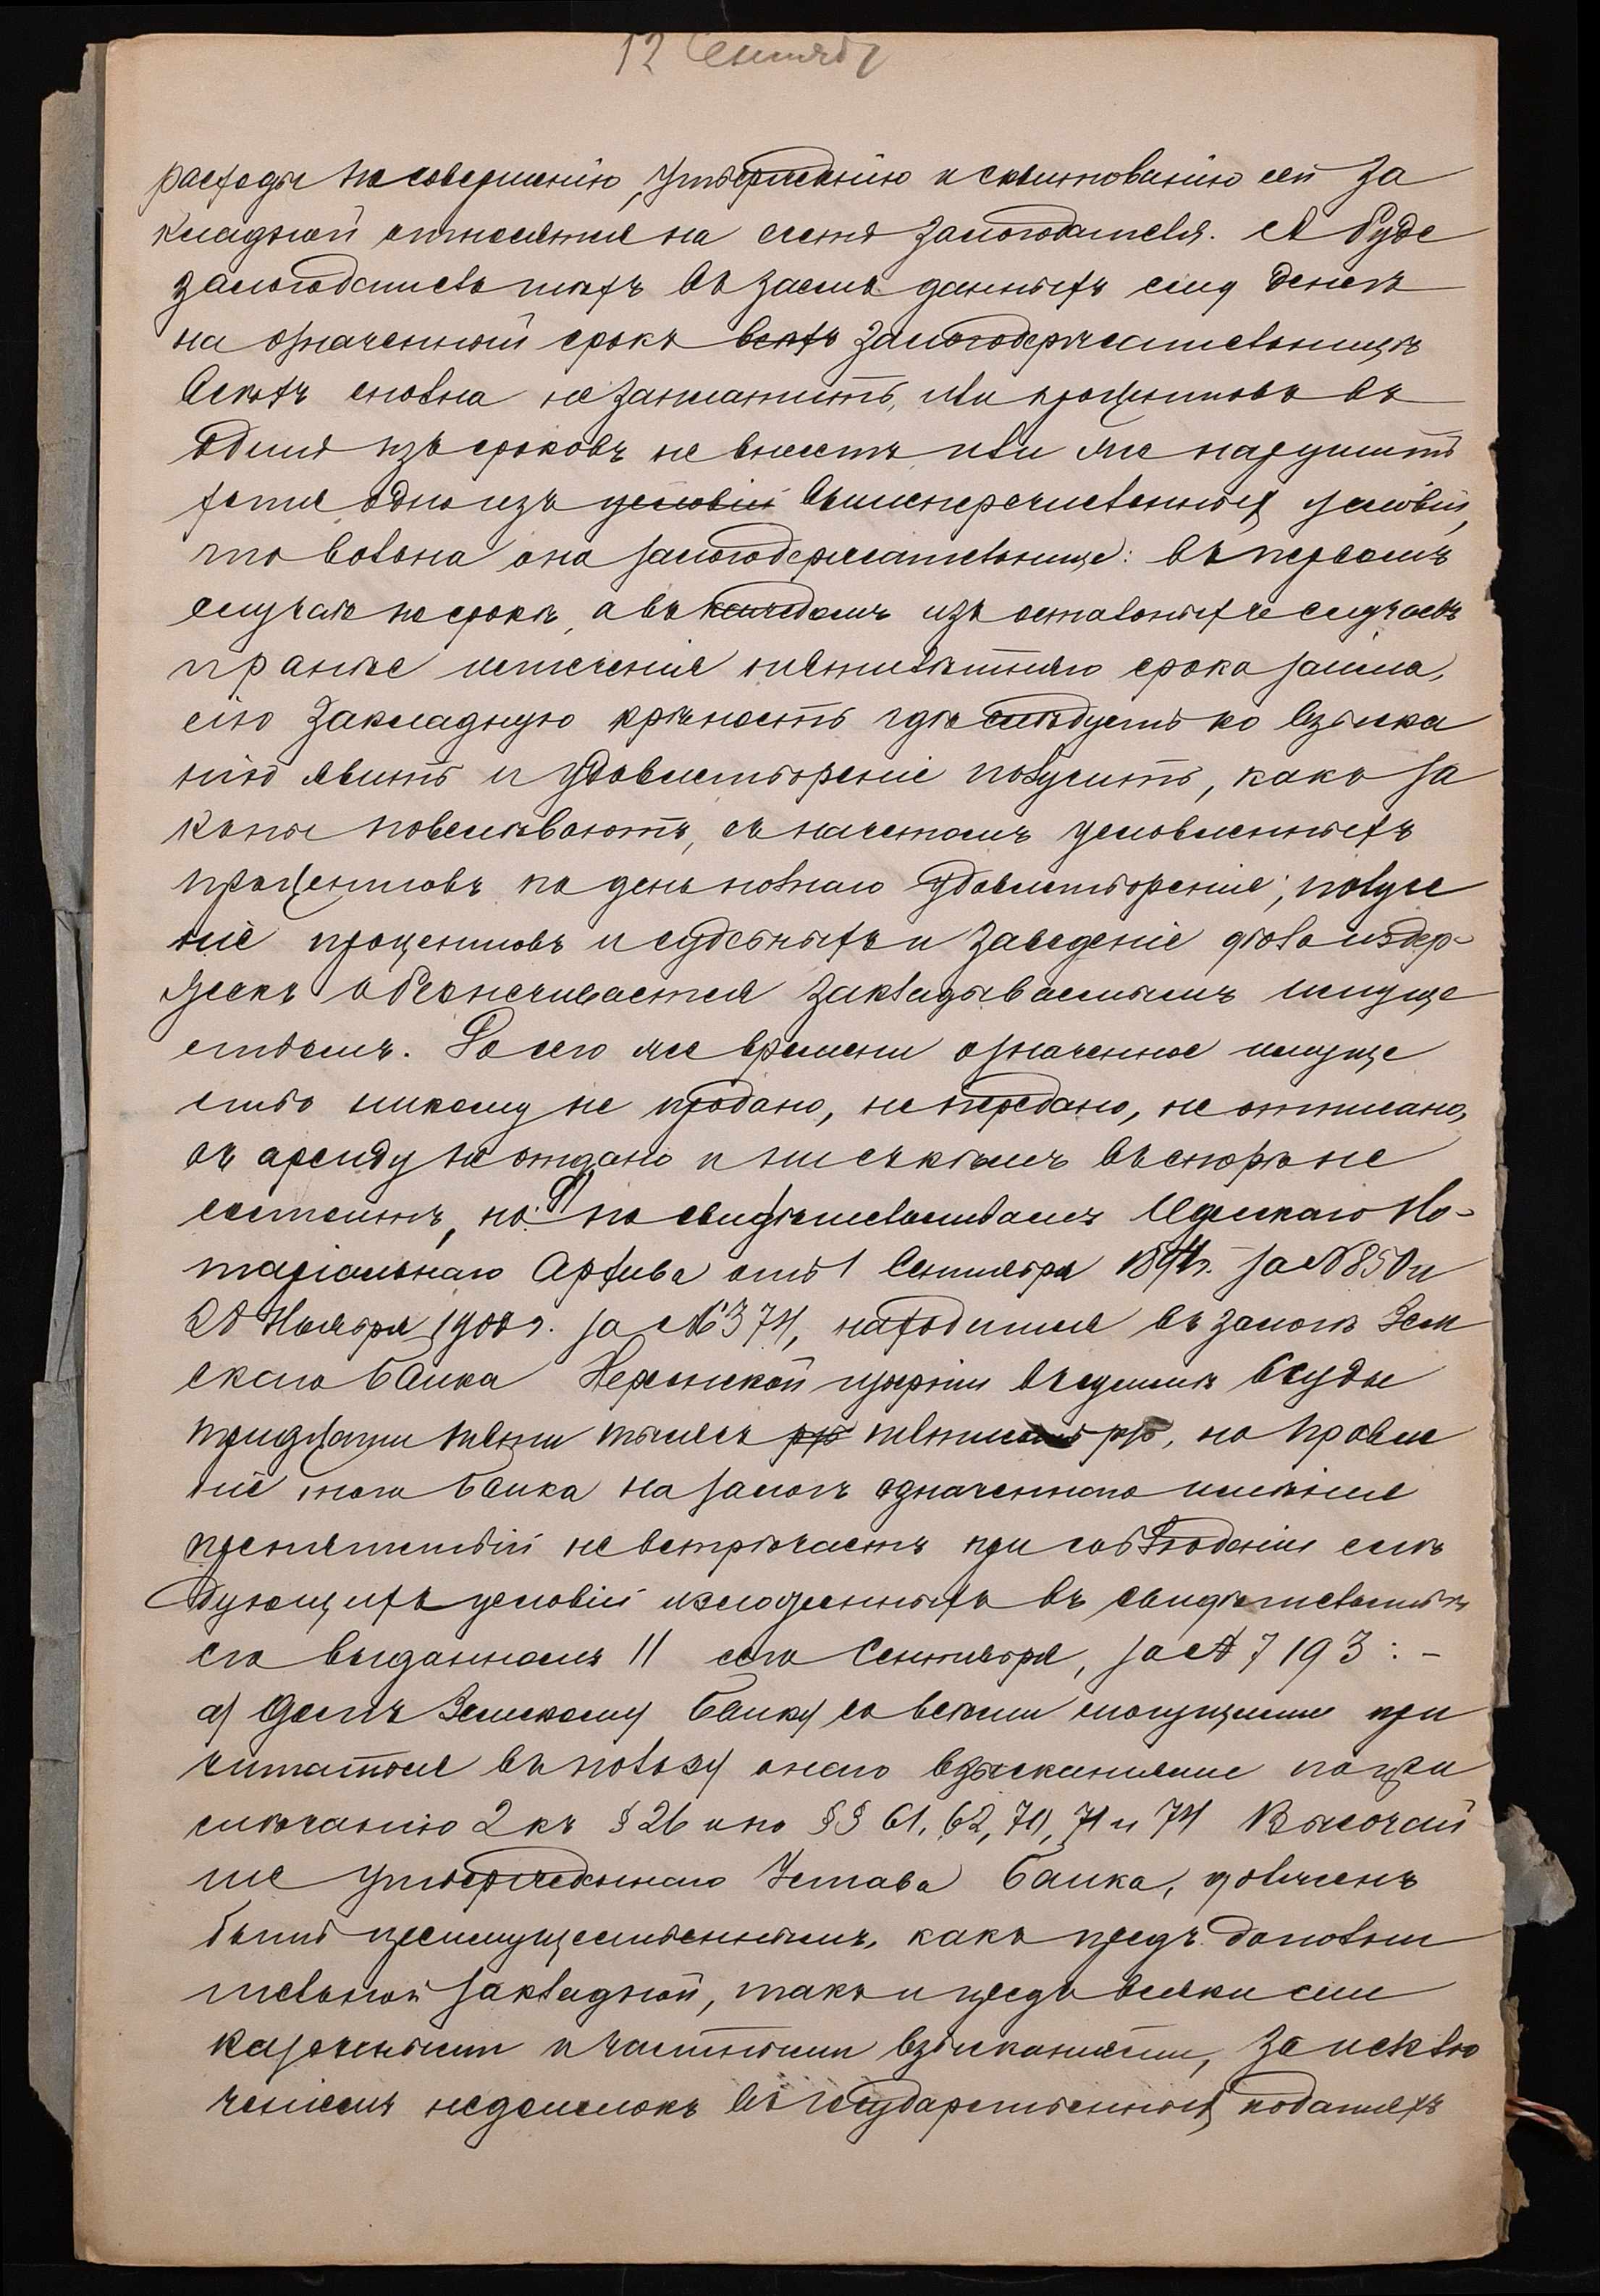 12 Сентяб
расходы по совершенію, утвержденію и сквитованію сей за
кладной относятся на счетъ залогодателя. А буде
залогодатель тѣхъ въ заемъ данныхъ ему денегъ
на означенный срокъ всѣхъ залогодержательницѣ
всѣхъ сполна не заплатитъ, или процентовъ въ
одинъ изъ сроковъ не внесетъ или же нарушитъ
хотя одно изъ условій вышеперечисленныхъ условій,
то вольна она залогодержательница: въ первомъ
случаѣ по срокѣ, а въ каждомъ изъ остальныхъ случаевъ
и ранѣе истеченія пятилѣтняго срока займа,
сію закладную крѣпость гдѣ слѣдуетъ ко взыска
нію явить и удовлетвореніе получить, какъ за
коны повелѣваютъ, съ начетомъ условленныхъ
процентовъ по день полнаго удовлетворенія; получе
ніе процентовъ и судебныхъ и за веденіе дѣла издер-
жекъ обезпечивается закладываемымъ имуще
ствомъ. До сего же времени означенное имуще
ство никому не продано, не передано, не отписано,
въ аренду не отдано и ни съ кѣмъ въ спорѣ не
состоитъ, но: по свидѣтельствамъ Одесскаго Но-
таріальнаго Архива отъ 1 Сентября за № 850 и
Ноября 1900 г. за № 374, находится въ залогѣ Зем
скаго Банка Херсонской губерніи въ суммѣ ссуды
тридцати пяти тысячъ рб пятисотъ рб, но Правле
ніе того Банка на залогъ означеннаго имѣнія
препятствій не встрѣчаетъ при соблюденіи слѣ
дующихъ условій изложенныхъ въ свидѣтельствѣ
его выданномъ 11 сего Сентября, за № 7193: -
а) Долгъ Земскому Банку со всѣми могущими при
читаться въ пользу онаго взысканіями по при
мѣчанію 2 къ § 26 и по §§ 61, 62, 70, 71 и 74 Высочай
ше утвержденнаго Устава Банка, долженъ
быть преимущественнымъ, какъ предъ дополни
тельной закладной, такъ и предъ всякими
казенными и частными взысканіями, за исклю
ченіемъ недоимокъ въ государственныхъ податяхъ